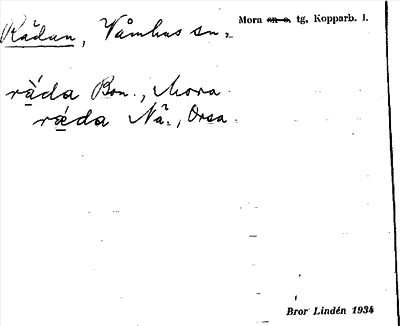 Rädan, Våmhus sn.,
Mora sn o. tg, Kopparb. l.
rä̀da Bon., Mora.
rǽda Nä., Orsa.
Bror Lindén 1934